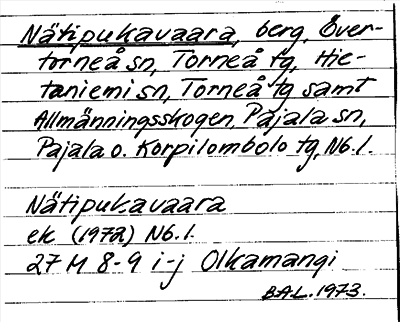 Nätipukavaara, berg, Över-
torneå sn, Torneå tg, Hie-
taniemi sn, Torneå tg samt
Allmänningsskogen, Pajala sn,
Pajala o. Korpilombolo tg, Nb.l.
Nätipukavaara
ek (1972) Nb.l.
27 M 8-9 i-j Olkamangi
BAL. 1973.